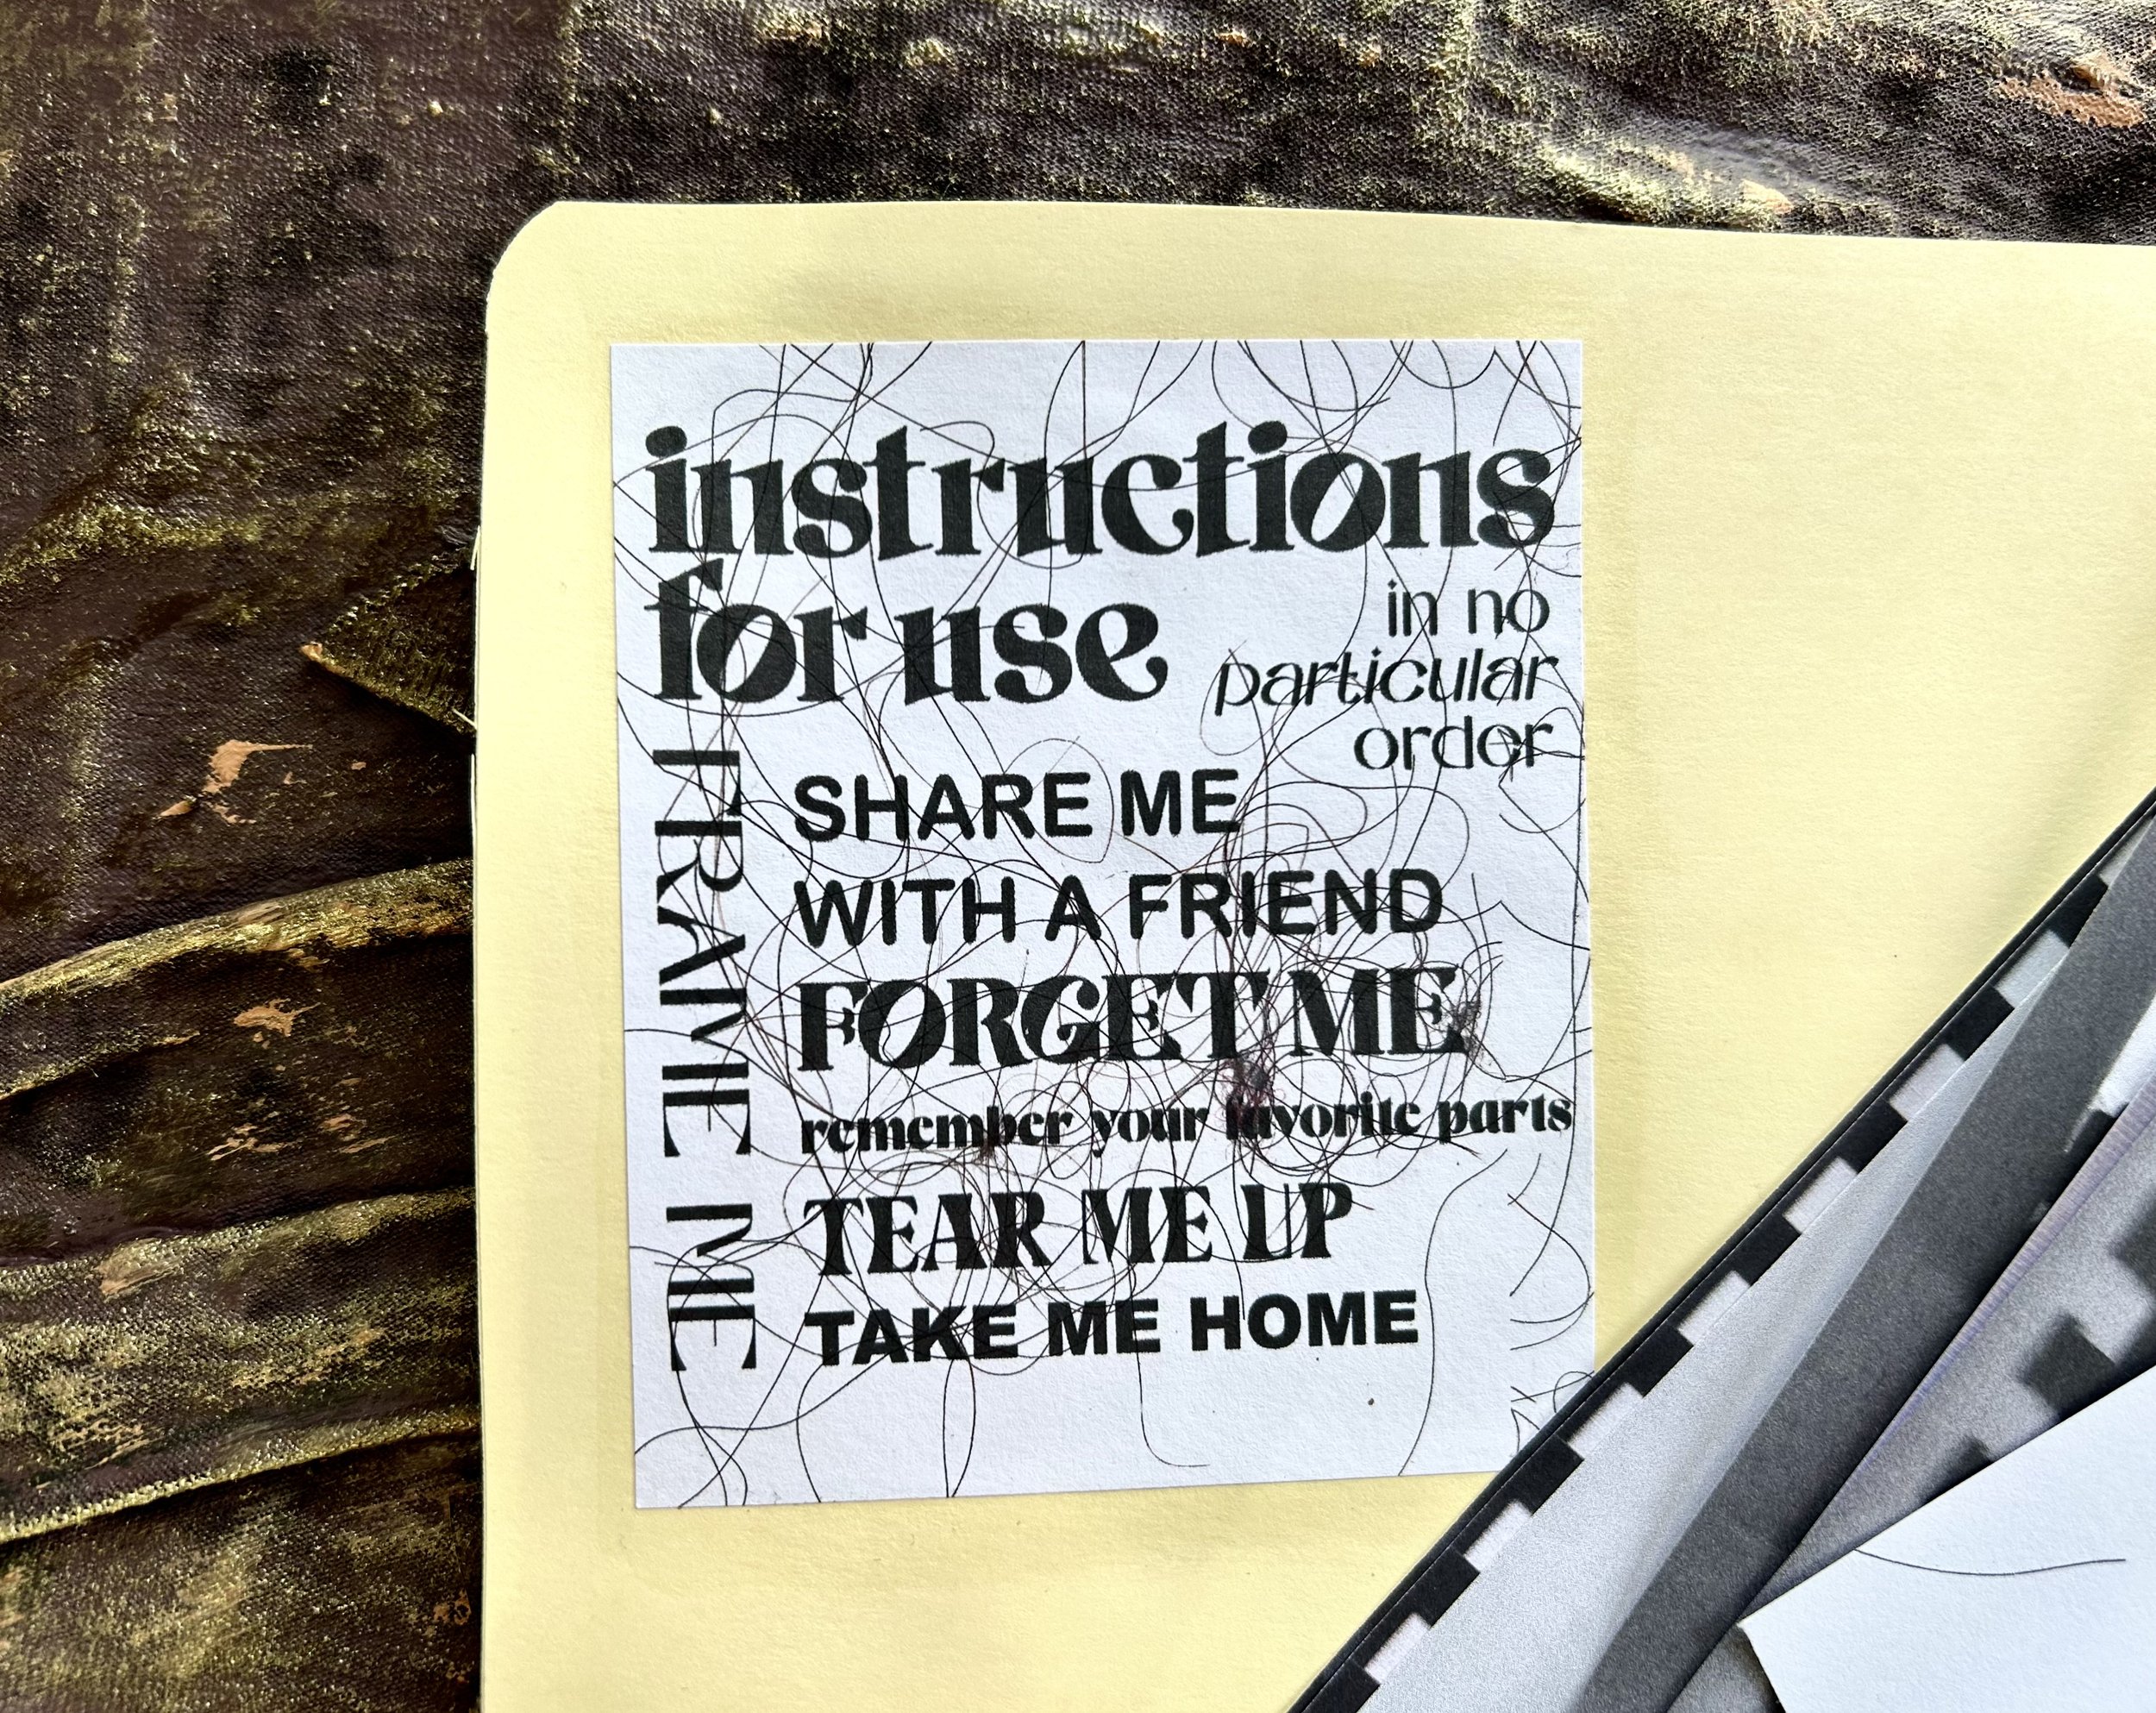 instructions
for use
in no
particular
order
FRAME ME
SHARE ME
WITH A FRIEND
FORGET ME
remember your favorite parts
TEAR ME UP
TAKE ME HOME